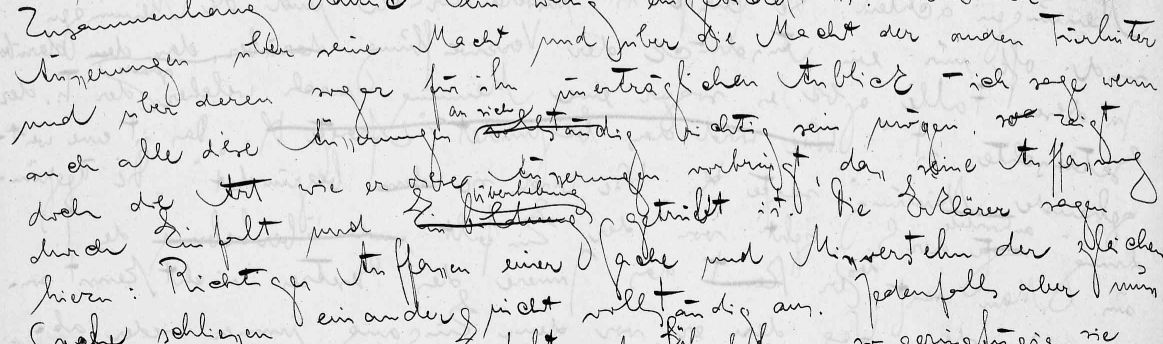 Zusammenhang
Äusserungen über seine Macht und über die Macht der andern Türhüter
und über deren sogar für ihn unerträglichen Anblick – ich sage wenn
auch alle diese Äusserungen an sich vollständig richtig sein mögen, so zeigt
doch die Art wie er diese Äusserungen vorbringt, dass seine Auffassung
durch Einfalt und Überhebung Einbildung getrübt ist. Die Erklärer sagen
hiezu: Richtiges Auffassen einer Sache und Missverstehn der gleichen
Sache schliessen einander nicht vollständig aus. Jedenfalls aber muss
so geringfügig sie